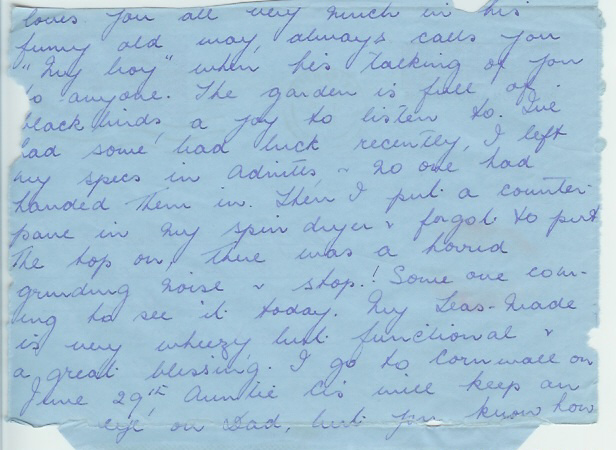 loves you all very much in his
funny old way, always calls you
"My boy" when his talking of you
to anyone. The garden is full of
black birds, a joy to listen to. I've
had some bad luck recently, I left
my specs in Adnitts & no one had
handed them in. Then I put a counter-
pane in my spin dryer & forgot to put
the top on, there was a horrid
grinding noise & stop! Some one com-
ing to see it today. My Teas-Made
is very wheezy but functional &
a great blessing. I go to Cornwall on
June 29th, Auntie Cis will keep an
eye on Dad, but you know how